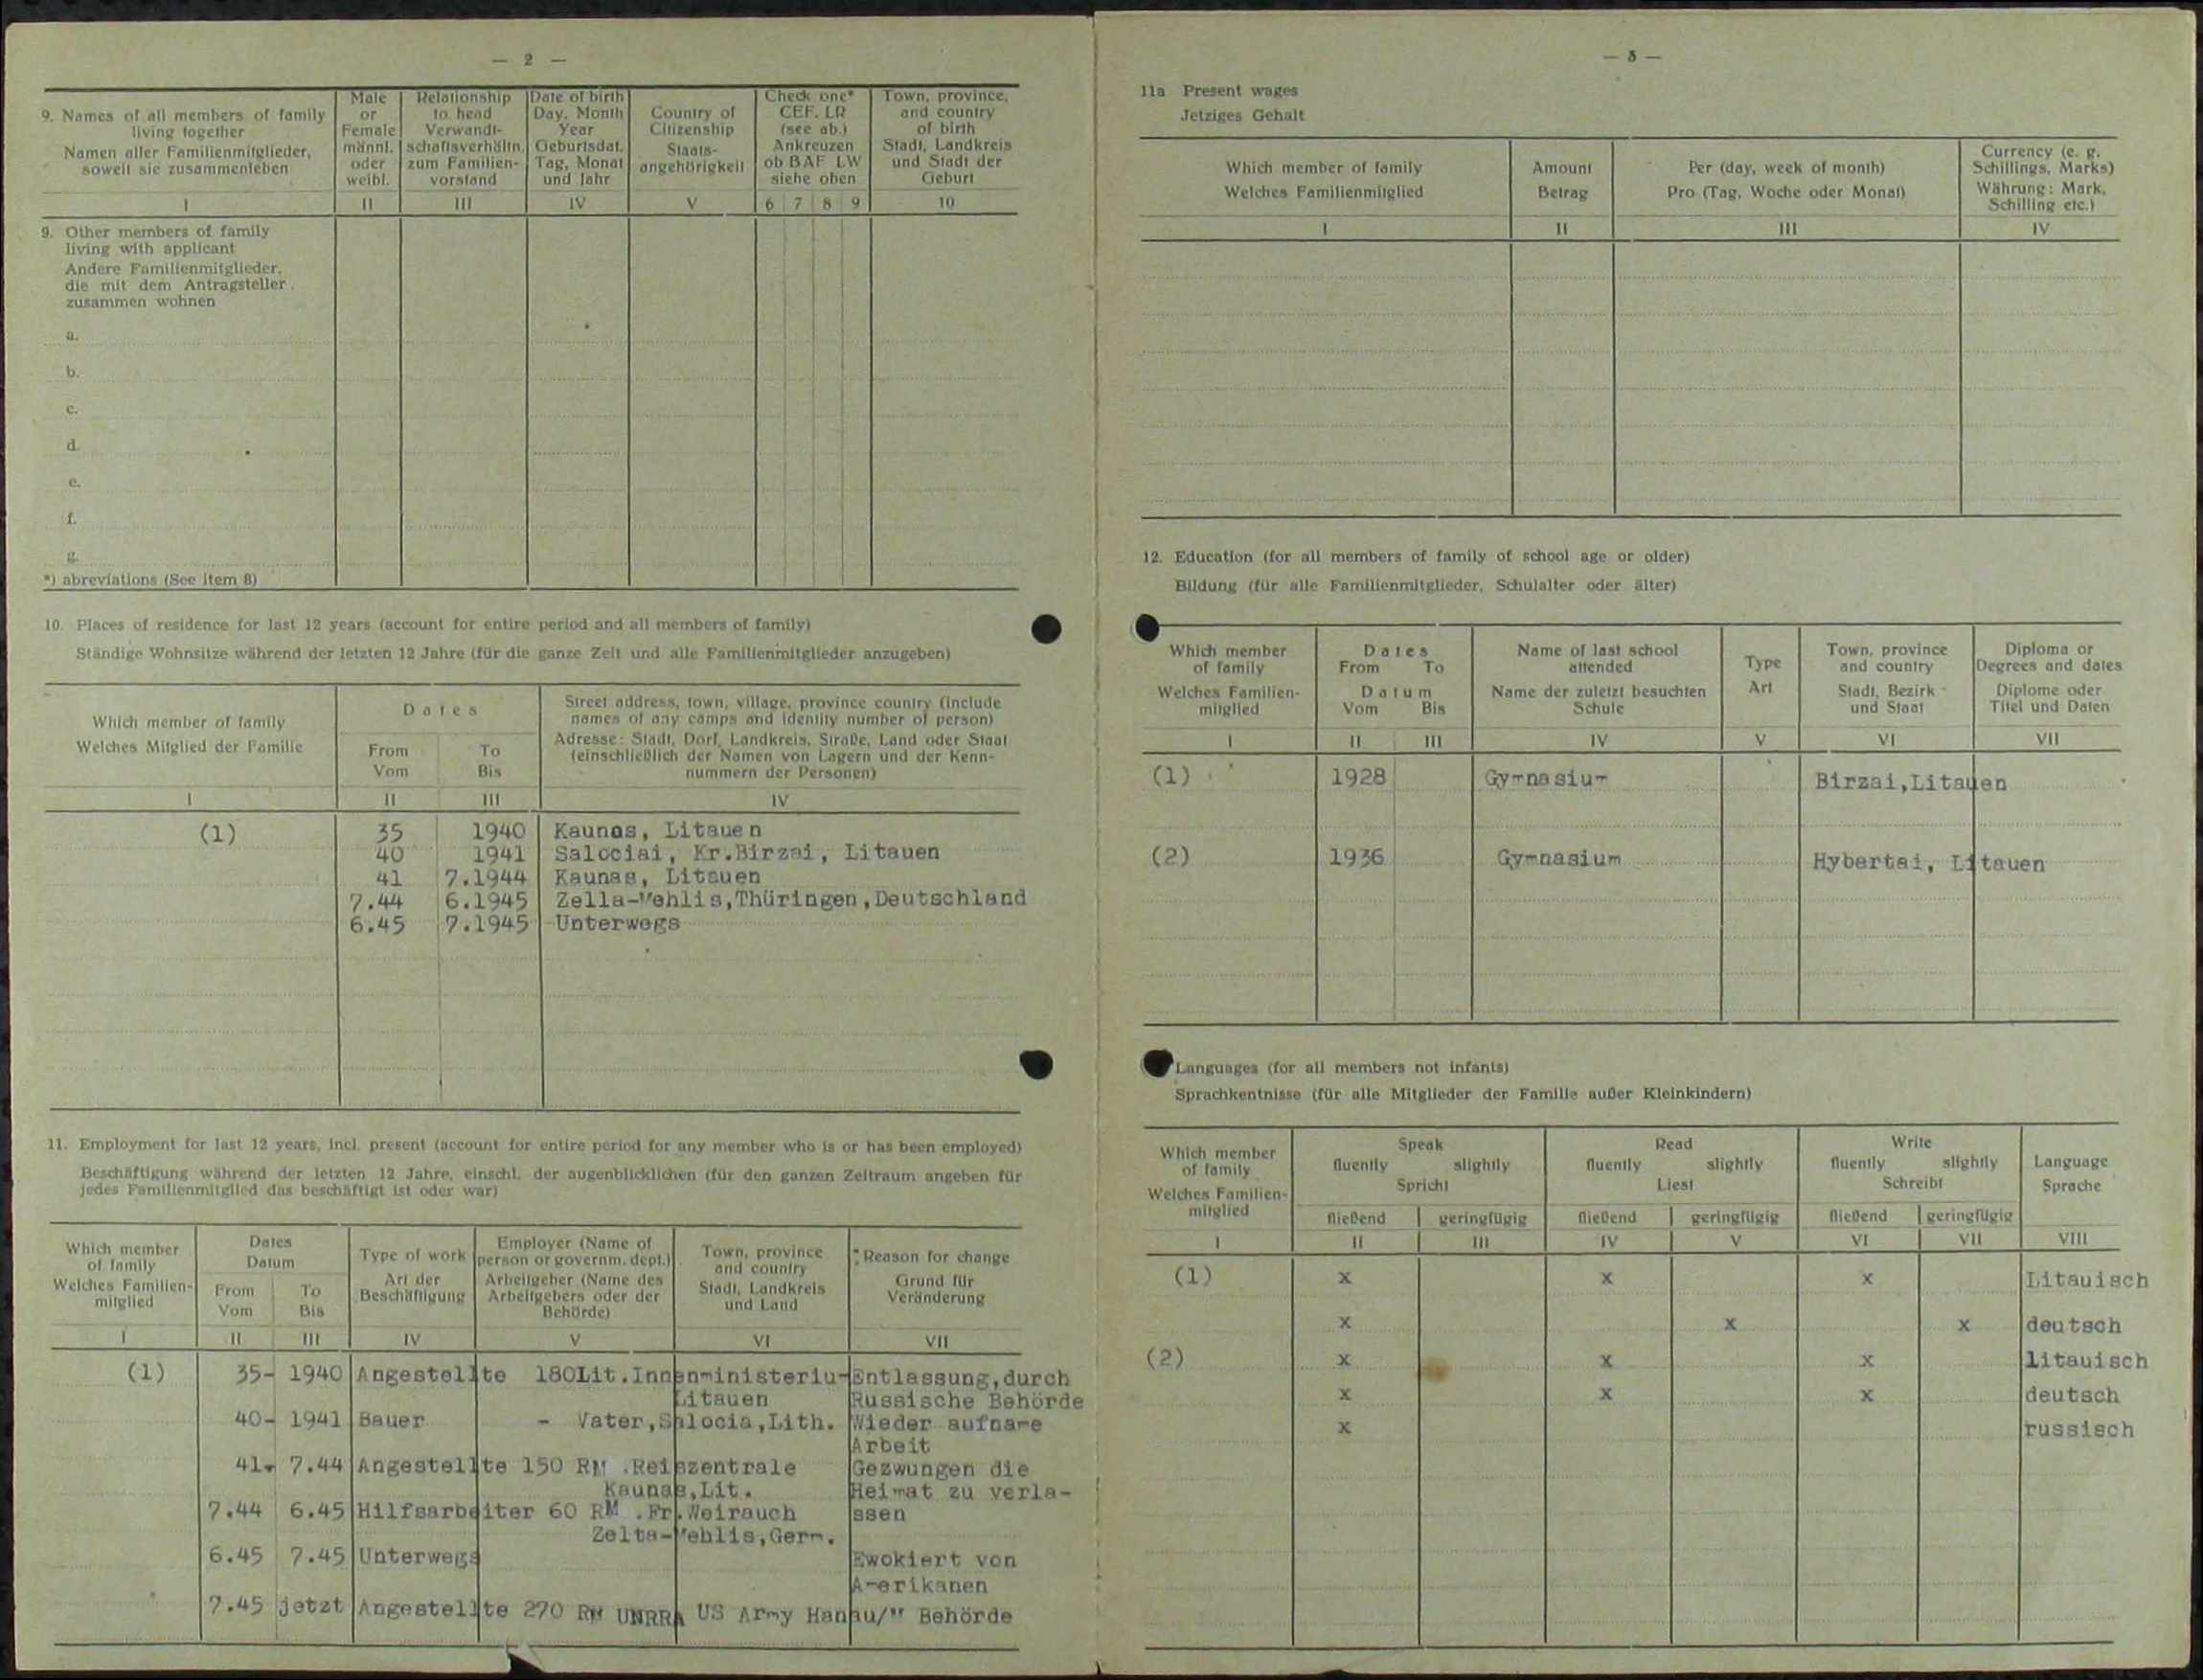 — 2 —
9. Names of all members of family living together
Namen aller Familienmitglieder, soweit sie zusammenleben
Male or Female
männl. oder weibl.
Relationship to head
Verwandtschaftsverhältn. zum Familienvorstand
Date of birth Day, Month Year
Geburtsdat. Tag, Monat und Jahr
Country of Citizenship
Staatsangehörigkeit
Check one* CEF. LR (see ab.)
Ankreuzen ob BAF LW siehe oben
Town, province, and country of birth
Stadt, Landkreis und Stadt der Geburt
I II III IV V 6 7 8 9 10
9. Other members of family
living with applicant
Andere Familienmitglieder,
die mit dem Antragsteller
zusammen wohnen
a.
b.
c.
d.
e.
f.
g.
*) abreviations (See item 8)
10. Places of residence for last 12 years (account for entire period and all members of family)
Ständige Wohnsitze während der letzten 12 Jahre (für die ganze Zeit und alle Familienmitglieder anzugeben)
Which member of family
Welches Mitglied der Familie
Dates
From Vom
To Bis
Street address, town, village, province country (include
names of any camps and identity number of person)
Adresse: Stadt, Dorf, Landkreis, Straße, Land oder Staat
(einschließlich der Namen von Lagern und der Kenn-
nummern der Personen)
I II III IV
(1) 35 1940 Kaunas, Litauen
40 1941 Salociai, Kr.Birzai, Litauen
41 7.1944 Kaunas, Litauen
7.44 6.1945 Zella-Mehlis,Thüringen,Deutschland
6.45 7.1945 Unterwegs
11. Employment for last 12 years, incl. present (account for entire period for any member who is or has been employed)
Beschäftigung während der letzten 12 Jahre, einschl. der augenblicklichen (für den ganzen Zeitraum angeben für
jedes Familienmitglied das beschäftigt ist oder war)
Which member of family
Welches Familien-mitglied
Dates
Datum
From Vom
To Bis
Type of work
Art der Beschäftigung
Employer (Name of person or governm. dept.)
Arbeitgeber (Name des Arbeitgebers oder der Behörde)
Town, province and country
Stadt, Landkreis und Land
Reason for change
Grund für Veränderung
I II III IV V VI VII
(1) 35- 1940 Angestellte 180Lit.Innenministerium Entlassung,durch
Litauen Russische Behörde
40- 1941 Bauer - Vater,Salocia,Lith. Wieder aufname
Arbeit
41- 7.44 Angestellte 150 RM .Reiszentrale Gezwungen die
Kaunas,Lit. Heimat zu verla-
7.44 6.45 Hilfsarbeiter 60 RM .Fr.Weirauch ssen
Zelta-Mehlis,Germ.
6.45 7.45 Unterwegs Ewokiert von
Amerikanen
7.45 jetzt Angestellte 270 RM UNRRA US Army Hanau/M Behörde
— 3 —
11a Present wages
Jetziges Gehalt
Which member of family
Welches Familienmitglied
Amount
Betrag
Per (day, week of month)
Pro (Tag, Woche oder Monat)
Currency (e. g. Schillings, Marks)
Währung: Mark, Schilling etc.)
I II III IV
12. Education (for all members of family of school age or older)
Bildung (für alle Familienmitglieder, Schulalter oder älter)
Which member of family
Welches Familien-mitglied
Dates
From To
Datum
Vom Bis
Name of last school attended
Name der zuletzt besuchten Schule
Type
Art
Town, province and country
Stadt, Bezirk und Staat
Diploma or Degrees and dates
Diplome oder Titel und Daten
I II III IV V VI VII
(1) 1928 Gymnasium Birzai,Litauen
(2) 1936 Gymnasium Hybartai, Litauen
Languages (for all members not infants)
Sprachkentnisse (für alle Mitglieder der Familie außer Kleinkindern)
Which member of family
Welches Familien-mitglied
Speak
fluently slightly
Spricht
fließend geringfügig
Read
fluently slightly
Liest
fließend geringfügig
Write
fluently slightly
Schreibt
fließend geringfügig
Language
Sprache
I II III IV V VI VII VIII
(1) x x x Litauisch
x x x deutsch
(2) x x x litauisch
x x x deutsch
x russisch